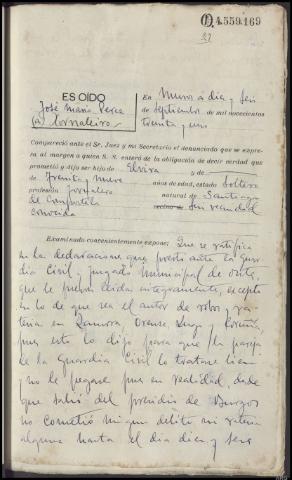 4.559.169
ES OIDO
José María Perea
(a) Cornaleiro
En Muros a diez y seis
de Septiembre de mil novecientos
treinta y uno
Compareció ante el Sr. Juez y mi Secretario el denunciado que se expre-
sa al margen a quien S. S. enteró de la obligación de decir verdad que
prometió y dijo ser hijo de Elvira y de
de treinta y nueve años de edad, estado soltero
profesión jornalero natural de Santiago
de Compostela vecino de sin vecindad
conocida
Examinado convenientemente expone: Que se ratifica
en la declaraciones que prestó ante la Guar
dia Civil y Juzgado municipal de
que le fueron leidas integramente, excepto
en lo de que sea el autor de robos y ra-
teria en Zamora, Orense Lugo y Coruña,
pues esto lo dijo para que la pareja
de la Guardia Civil lo tratase bien
y no le pegase pues en realidad, desde
que salió del presidio de Burgos
no cometió ningun delito ni rateria
alguna hasta el dia diez y seis